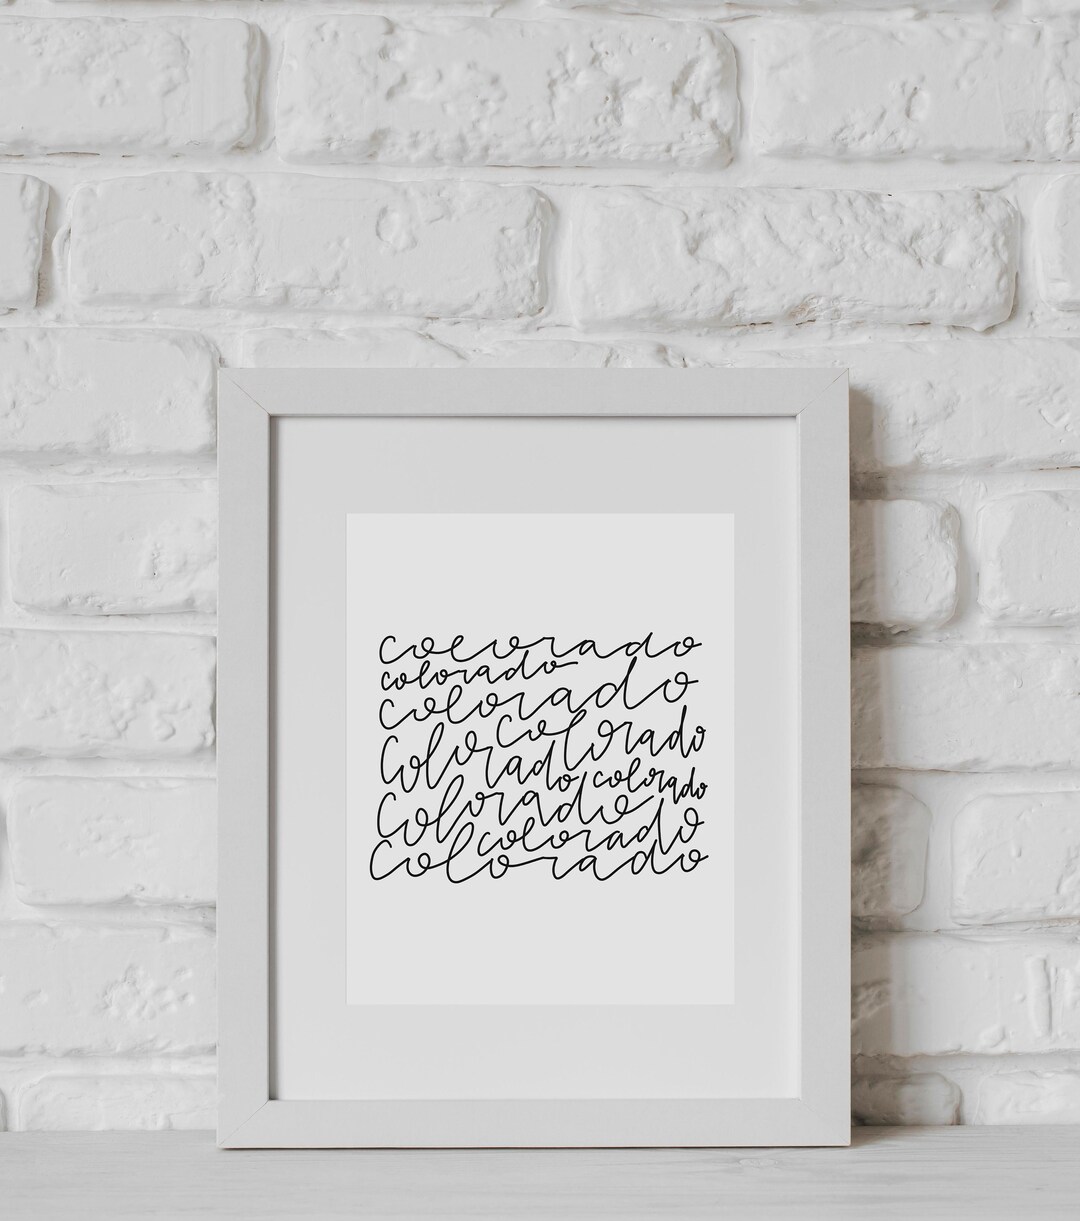 colorado
colorado
colorado
colorado colorado
colorado
colorado
colorado
colorado